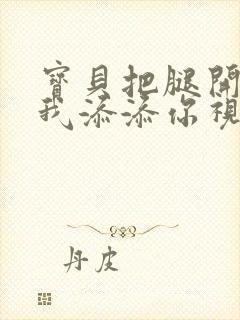 寶貝把腿開
我添添你視
丹皮